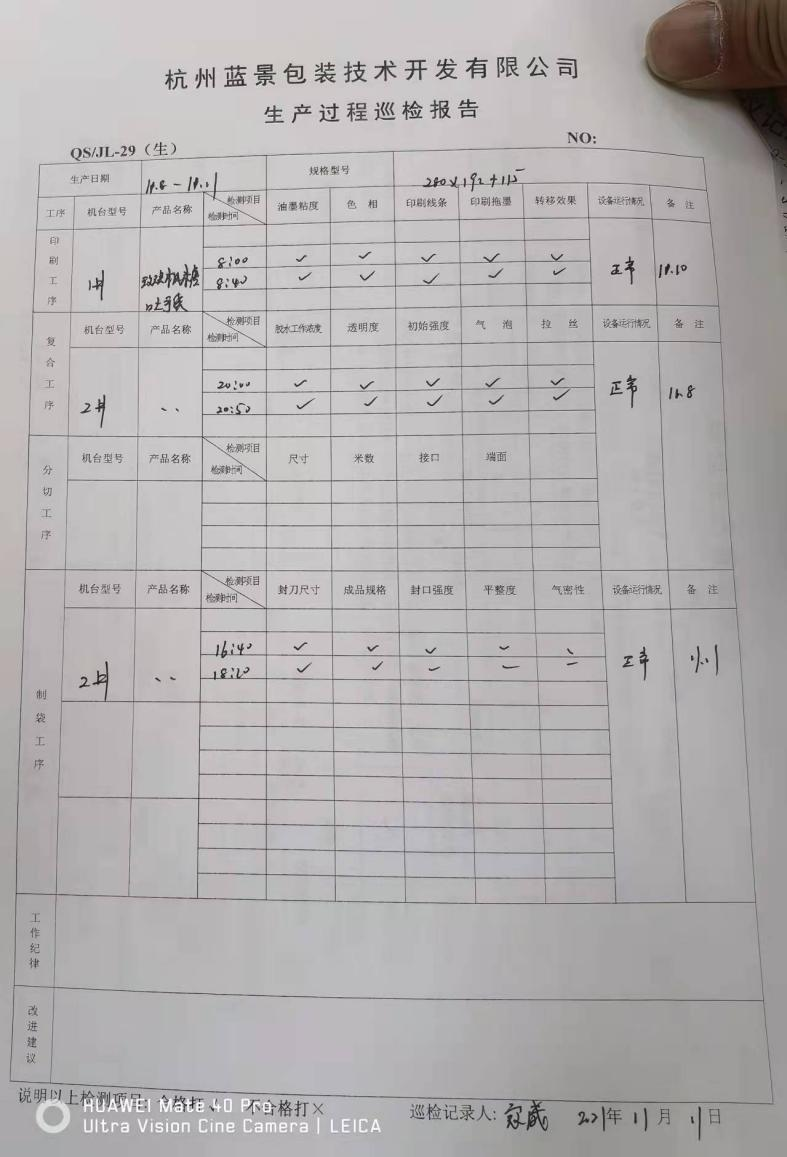 杭州蓝景包装技术开发有限公司
生产过程巡检报告
QS/JL-29（生） NO:
生产日期 规格型号
工序 机台型号 产品名称 检测项目 检测时间 油墨粘度 色相 印刷线条 印刷拖墨 转移效果 设备运行情况 备注
印刷工序
8:00 ✓ ✓ ✓ ✓ ✓
1# 8:40 ✓ ✓ ✓ ✓ ✓ 正常
复合工序 机台型号 产品名称 检测项目 检测时间 脱水工作浓度 透明度 初始强度 气泡 拉丝 设备运行情况 备注
20:00 ✓ ✓ ✓ ✓ ✓
2# 20:50 ✓ ✓ ✓ ✓ ✓ 正常
分切工序 机台型号 产品名称 检测项目 检测时间 尺寸 米数 接口 端面
制袋工序 机台型号 产品名称 检测项目 检测时间 封刀尺寸 成品规格 封口强度 平整度 气密性 设备运行情况 备注
16:40 ✓ ✓ ✓ ✓
2# 18:20 ✓ ✓ 正常
工作纪律
改进建议
说明以上检测项目：合格打✓ 不合格打×
巡检记录人: 2021年11月11日
HUAWEI Mate 40 Pro
Ultra Vision Cine Camera | LEICA